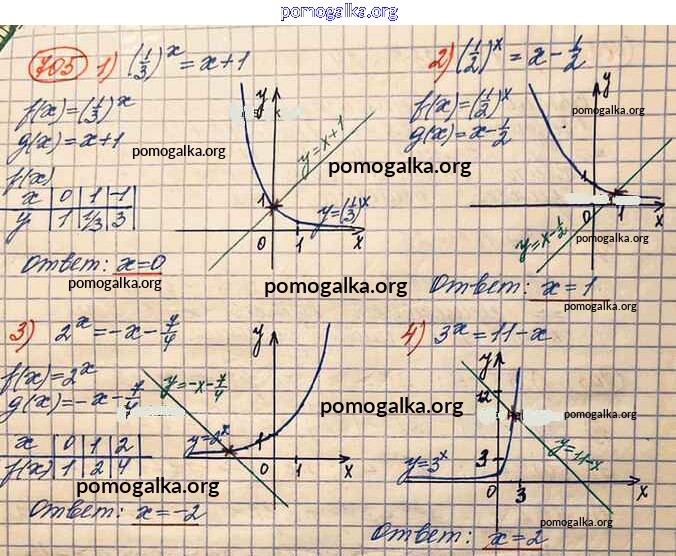 pomogalka.org
705 1) (1/3)^x = x+1
f(x)=(1/3)^x
g(x)=x+1
pomogalka.org
f(x)
x 0 1 -1
y 1 1/3 3
y
y=x+1
pomogalka.org
1
y=(1/3)^x
0 1 x
Ответ: x=0
pomogalka.org
pomogalka.org
2) (1/2)^x = x - 1/2
f(x)=(1/2)^x
g(x)=x-1/2
pomogalka.org
y
pomogalka.org
1
0 1 x
y=x-1/2
pomogalka.org
Ответ: x=1
pomogalka.org
3) 2^x = -x - 7/4
f(x)=2^x
g(x)=-x-7/4
x 0 1 2
f(x) 1 2 4
y
y=-x-7/4
y=2^x
1
0 1 x
pomogalka.org
pomogalka.org
Ответ: x=-2
4) 3^x = 11-x
y
12
pomogalka.org
y=11-x
y=3^x
3
0 3 x
pomogalka.org
Ответ: x=2